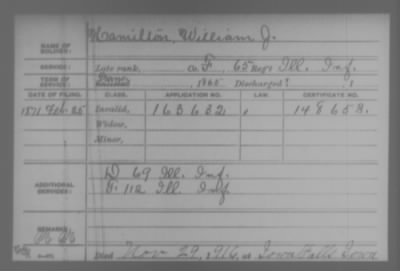 Hamilton, William J.
NAME OF SOLDIER:
SERVICE: Late rank, Co. F, 65 Reg't Ill. Inf.
TERM OF SERVICE: Enrolled , 1865 Discharged , 1
DATE OF FILING. CLASS. APPLICATION NO. LAW. CERTIFICATE NO.
1871 Feb. 25 Invalid, 163632 , 148658.
Widow,
Minor,
ADDITIONAL SERVICES: D 69 Ill. Inf.
F. 112 Ill Inf
REMARKS:
Died Nov 29, 1916, at Iowa Falls Iowa